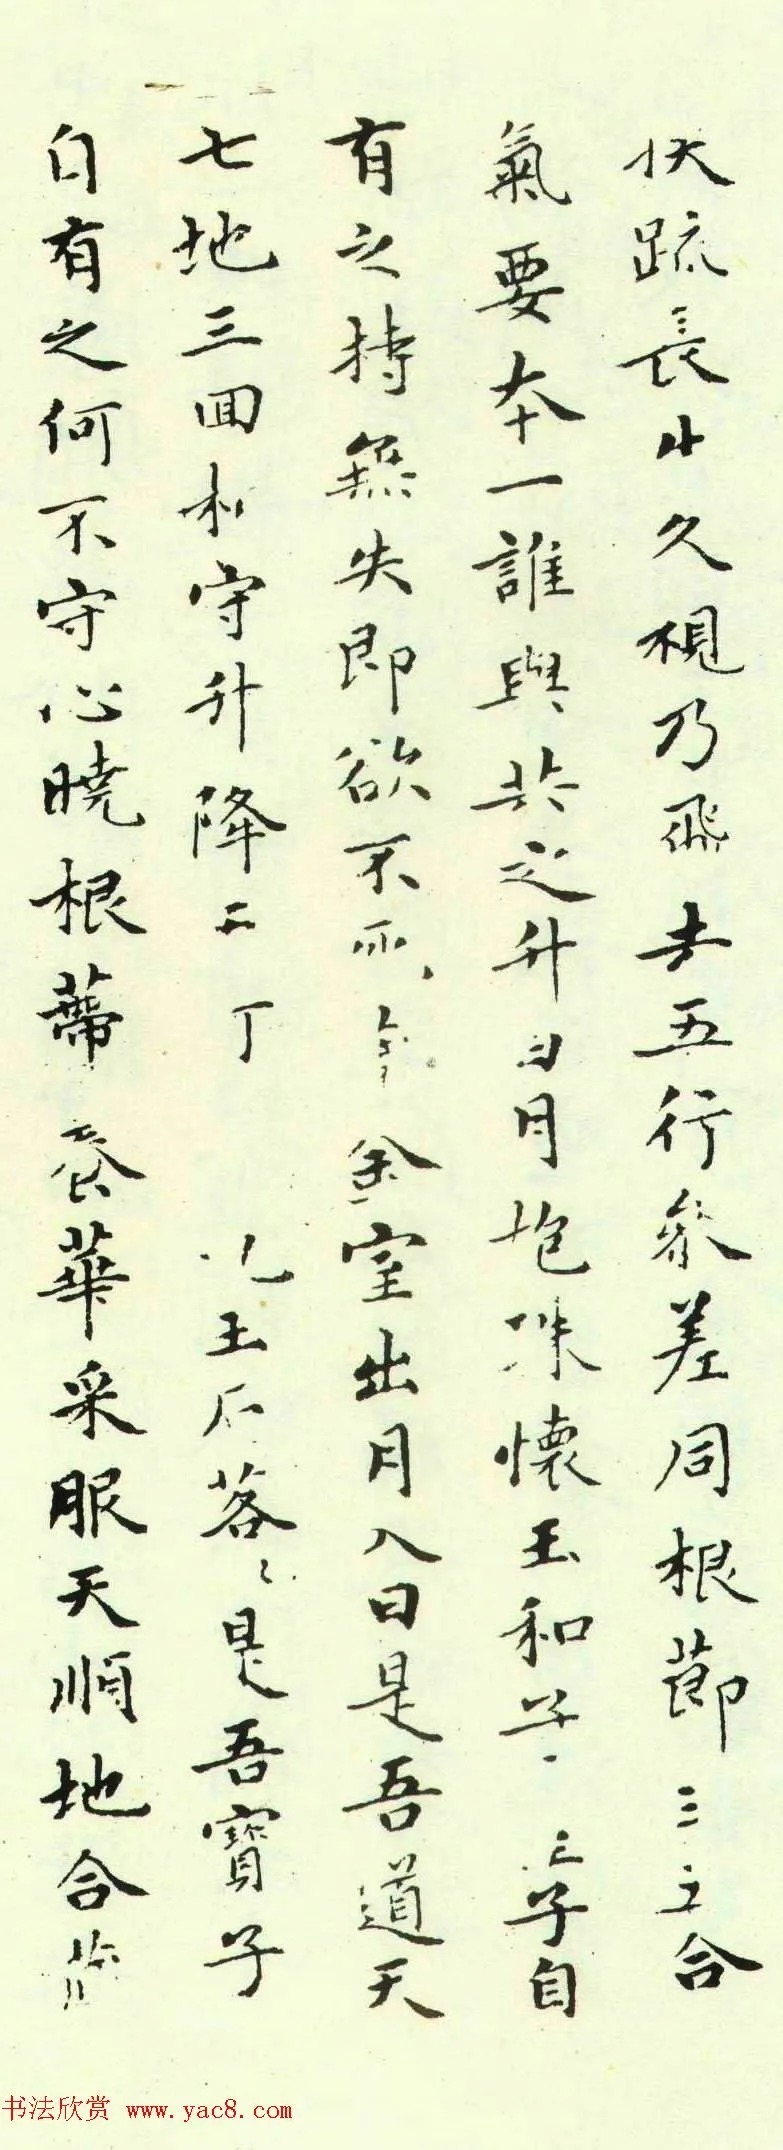 伏䟽長生久視乃飛去五行參差同根節三五合
氣要本一誰與共之升日月抱珠懷玉和子室子自
有之持無失即欲不死金室出月入日是吾道天
七地三回相守升降五行一合九玉石落〻是吾寶子
自有之何不守心曉根蒂養華采服天順地合藏
书法欣赏 www.yac8.com